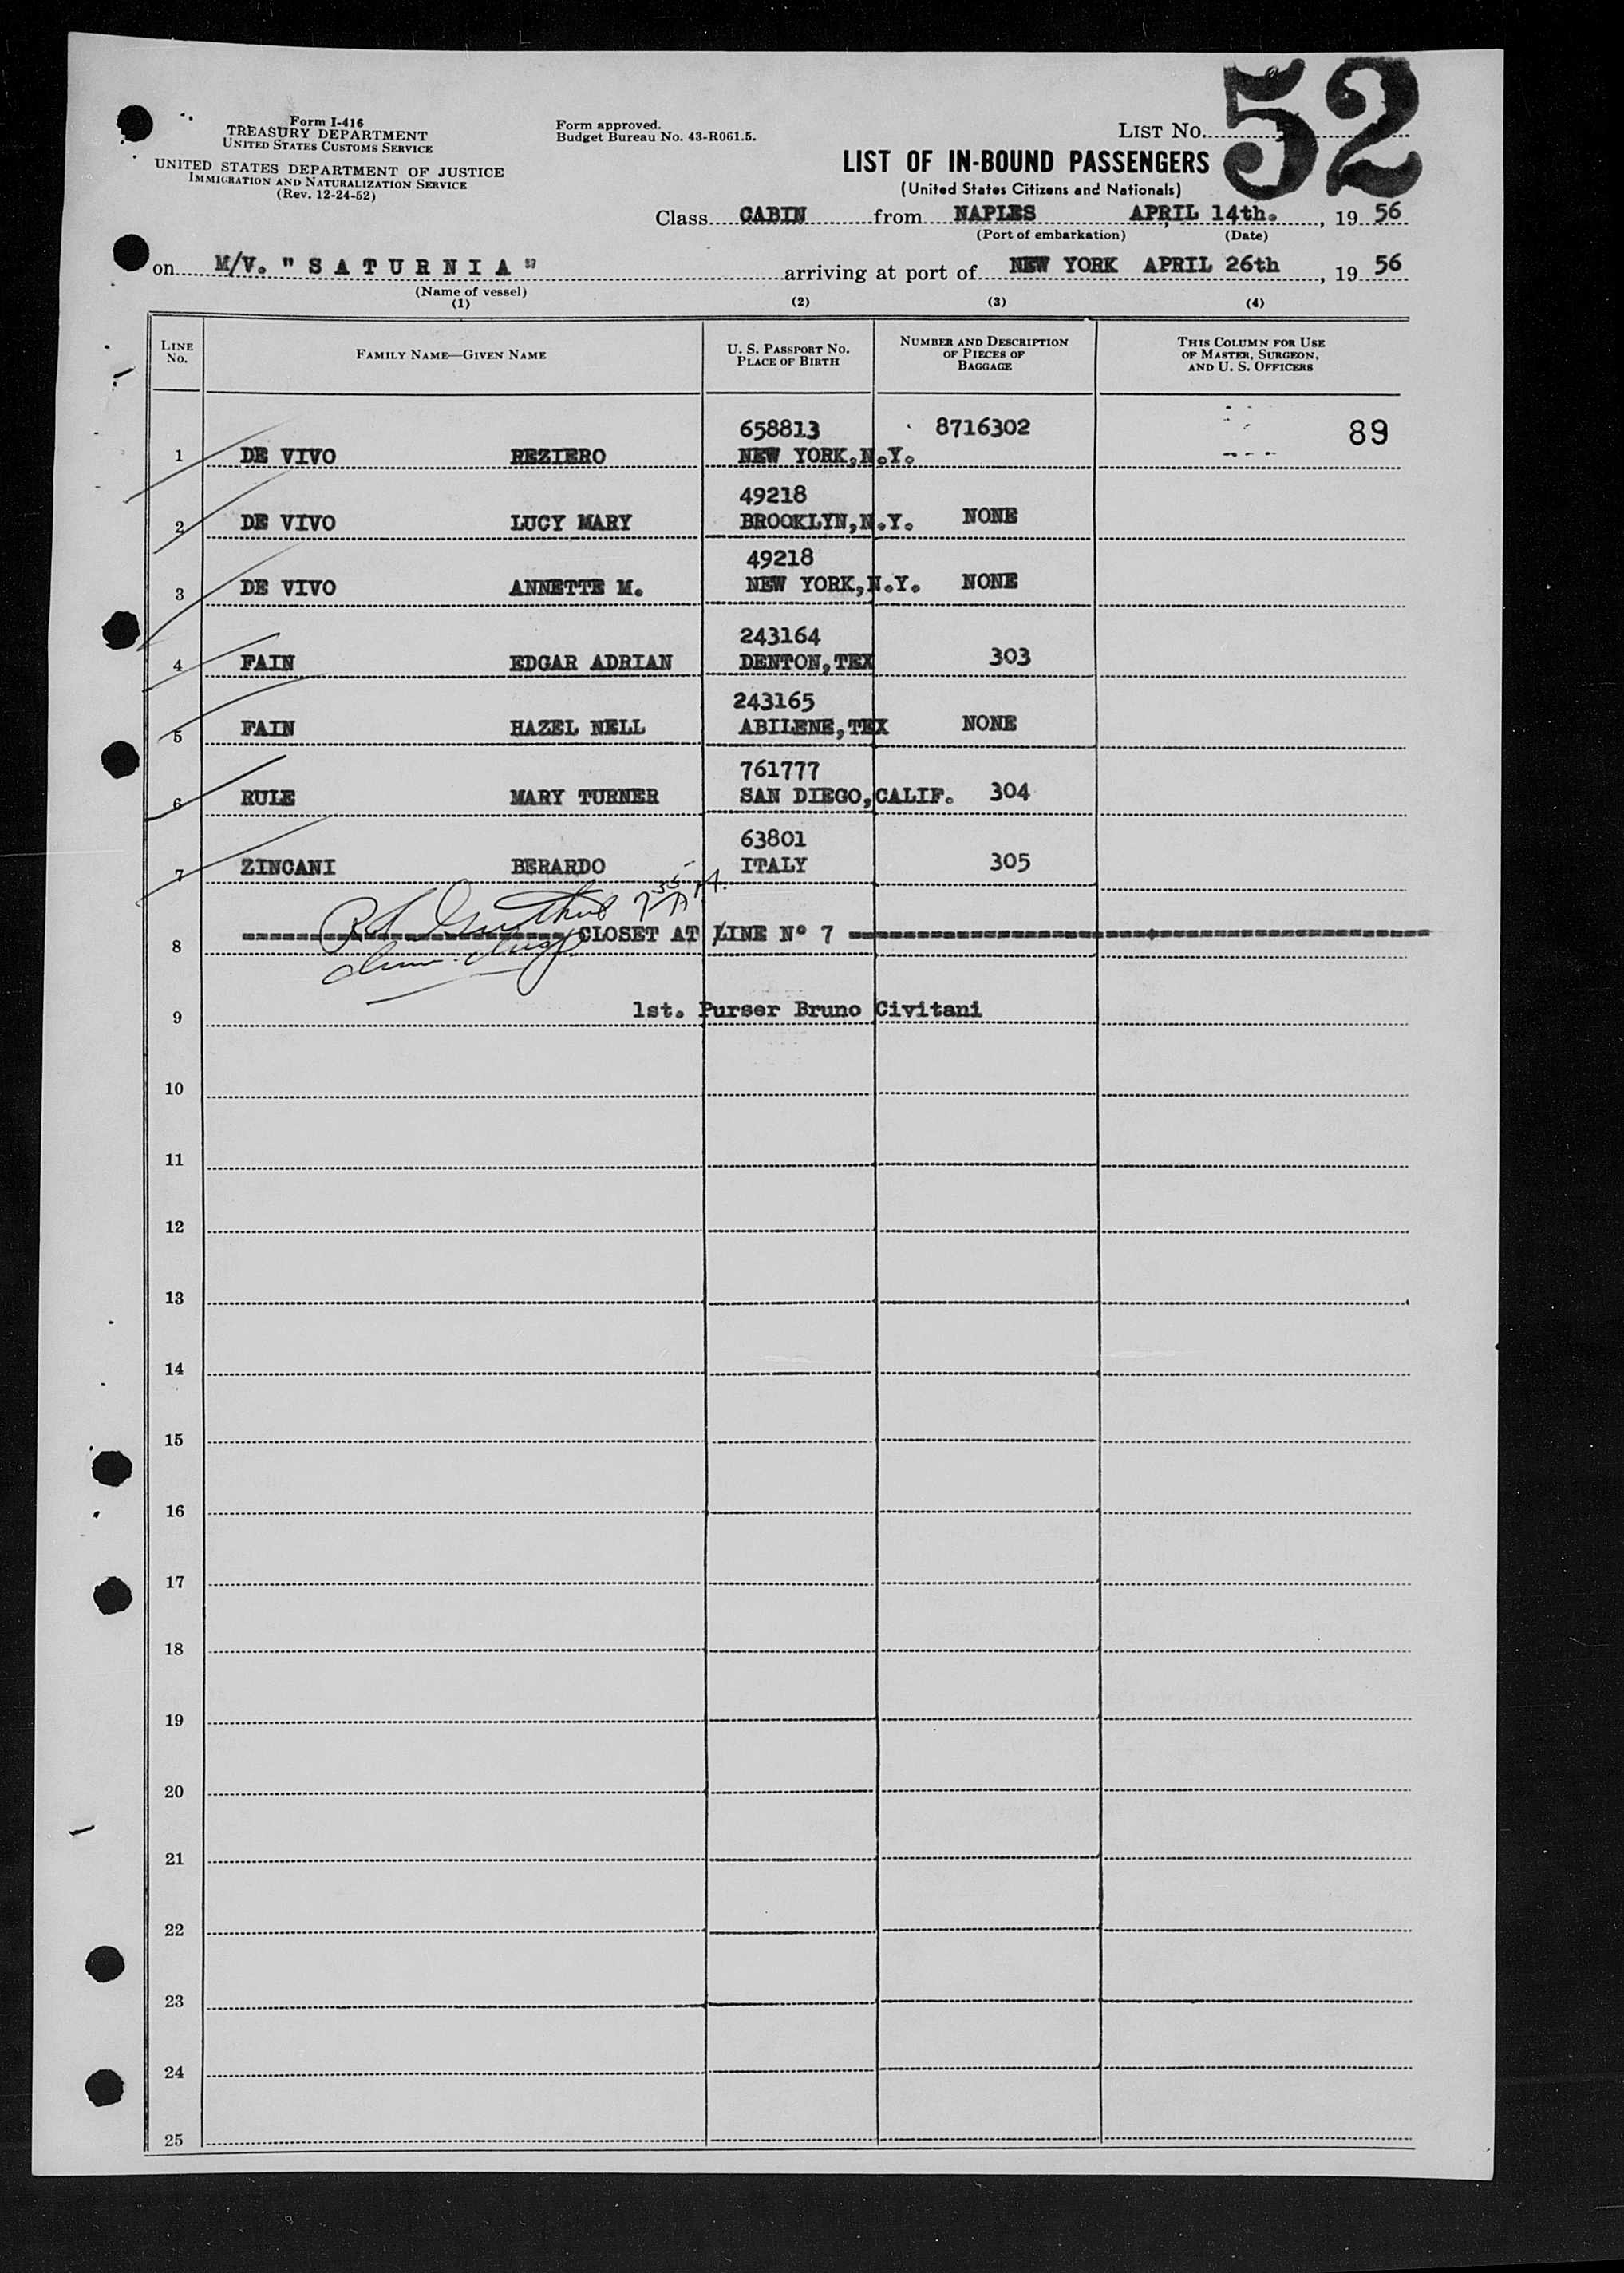 52
Form I-416
TREASURY DEPARTMENT
UNITED STATES CUSTOMS SERVICE
UNITED STATES DEPARTMENT OF JUSTICE
IMMIGRATION AND NATURALIZATION SERVICE
(Rev. 12-24-52)
Form approved.
Budget Bureau No. 43-R061.5.
LIST No. 5
LIST OF IN-BOUND PASSENGERS
(United States Citizens and Nationals)
Class CABIN from NAPLES APRIL 14th. , 19 56
(Port of embarkation) (Date)
on M/V. "SATURNIA" arriving at port of NEW YORK APRIL 26th , 19 56
(Name of vessel)
(1) (2) (3) (4)
LINE No. FAMILY NAME—GIVEN NAME U. S. PASSPORT NO. PLACE OF BIRTH NUMBER AND DESCRIPTION OF PIECES OF BAGGAGE THIS COLUMN FOR USE OF MASTER, SURGEON, AND U. S. OFFICERS
658813 8716302 89
1 DE VIVO REZIERO NEW YORK,N.Y.
49218
2 DE VIVO LUCY MARY BROOKLYN,N.Y. NONE
49218
3 DE VIVO ANNETTE M. NEW YORK,N.Y. NONE
243164
4 FAIN EDGAR ADRIAN DENTON,TEX 303
243165
5 FAIN HAZEL NELL ABILENE,TEX NONE
761777
6 RULE MARY TURNER SAN DIEGO,CALIF. 304
63801
7 ZINCANI BERARDO ITALY 305
8 CLOSET AT LINE N° 7
9 1st. Purser Bruno Civitani
10
11
12
13
14
15
16
17
18
19
20
21
22
23
24
25